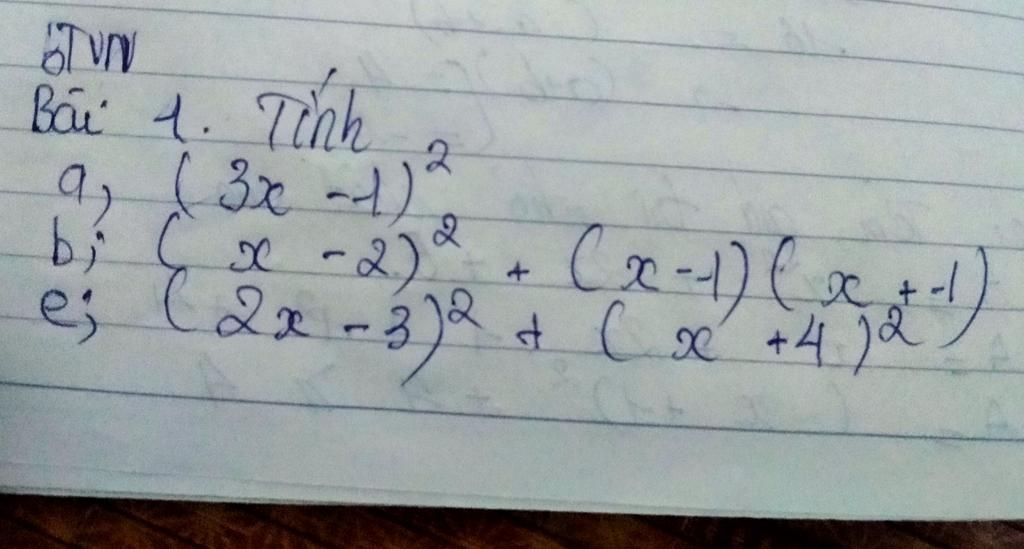 BTVN
Bài 1. Tính
a, (3x - 1)²
b; (x - 2)² + (x - 1)(x + 1)
c; (2x - 3)² + (x + 4)²